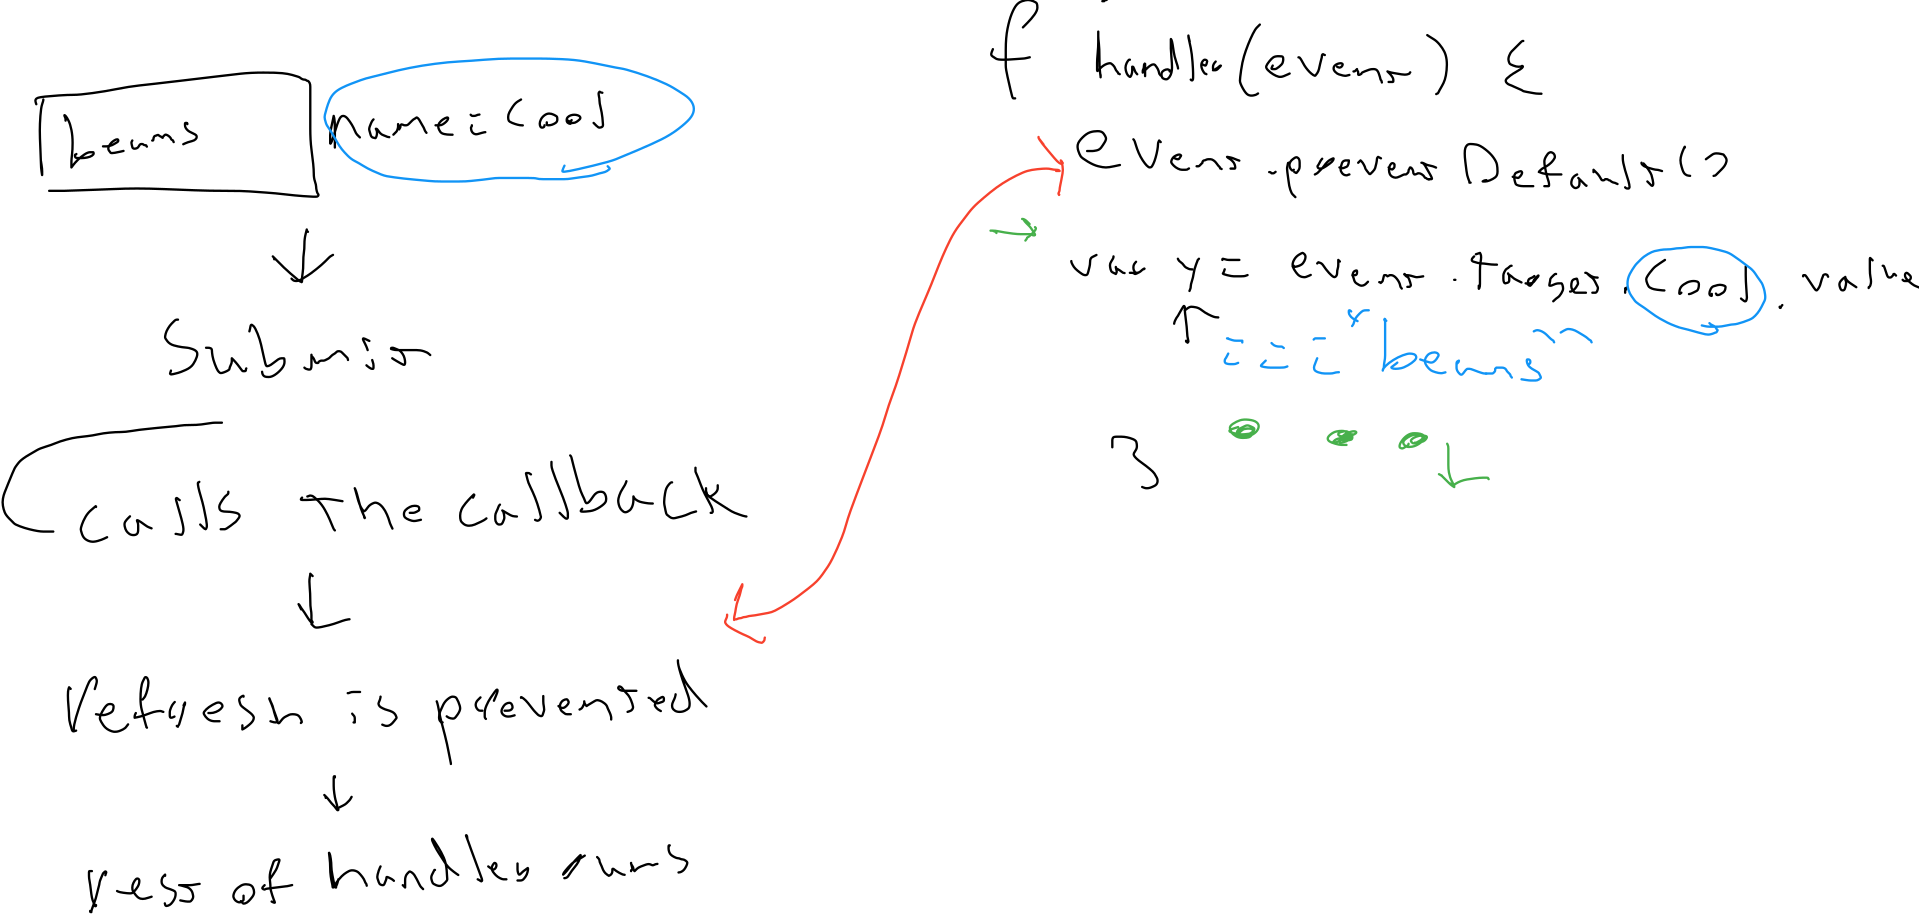 beans name=cool
Submit
calls the callback
refresh is prevented
rest of handler runs
f handler(event) {
event.preventDefault()
var y = event.target.cool.value
=== "beans"
}